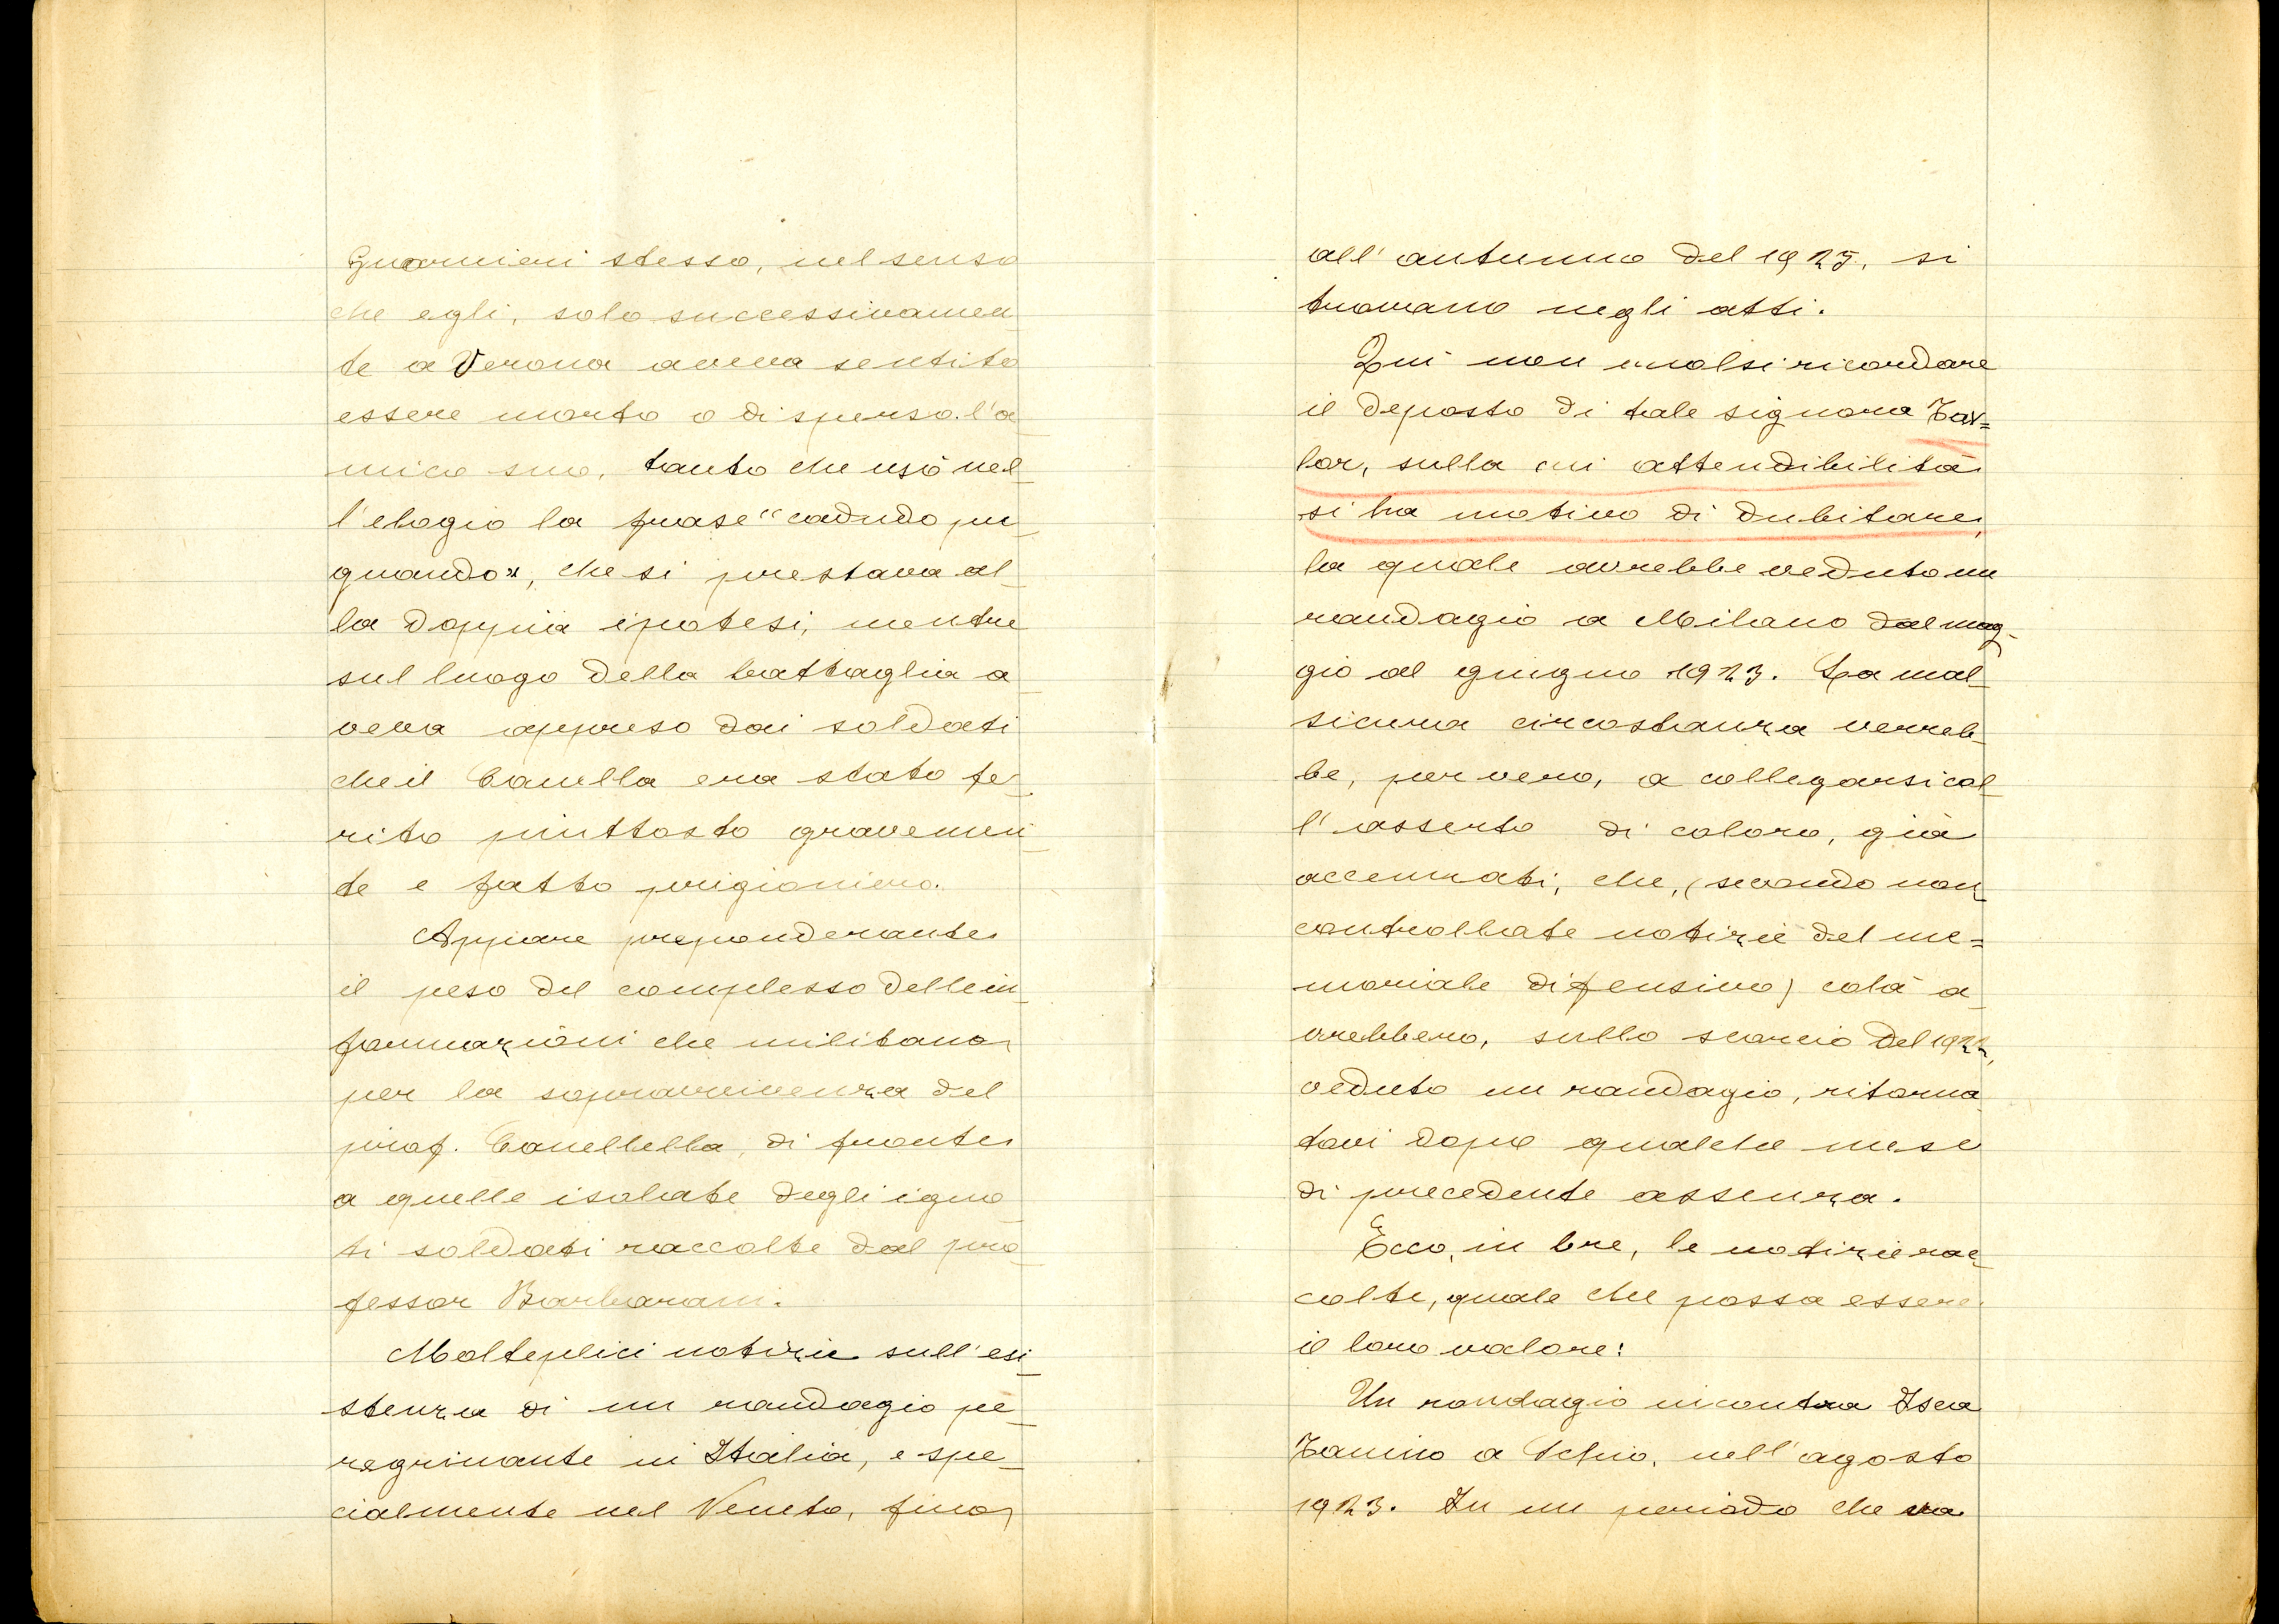 Guarnieri stesso, nel senso
che egli, solo successivamen
te a Verona aveva sentito
essere morto o disperso l'a
mico suo, tanto che usò nel
l'elogio la frase "caduto pu
gnando", che si prestava al
la doppia ipotesi, mentre
sul luogo della battaglia a
veva appreso dai soldati
che il Canella era stato fe
rito piuttosto gravemen
te e fatto prigioniero.
Appare preponderante
il peso del complesso delle in
formazioni che militano
per la sopravvivenza del
prof. Canellella, di fronte
a quelle isolate degli igno
ti soldati raccolte dal pro
fessor Barbarani.
Molteplici notizie sull'esi
stenza di un randagio pe
regrinante in Italia, e spe
cialmente nel Veneto, fino
all'autunno del 1925, si
trovano negli atti.
Qui non vuolsi ricordare
il deposto di tale signora Tay=
lor, sulla cui attendibilità
si ha motivo di dubitare,
la quale avrebbe veduto un
randagio a Milano dal mag-
gio al giugno 1923. La mal
sicura circostanza verreb
be, per vero, a collegarsi col
l'asserto di coloro, già
accennati, che, (secondo non
controllate notizie del me=
moriale difensivo) colà a
vrebbero, sullo scorcio del 1922,
veduto un randagio, ritorna
tovi dopo qualche mese
di precedente assenza.
Ecco, in bre, le notizie rac
colte, quale che possa essere
il loro valore:
Un randagio incontra Isea
Tamino a Schio, nell'agosto
1923. In un periodo che va